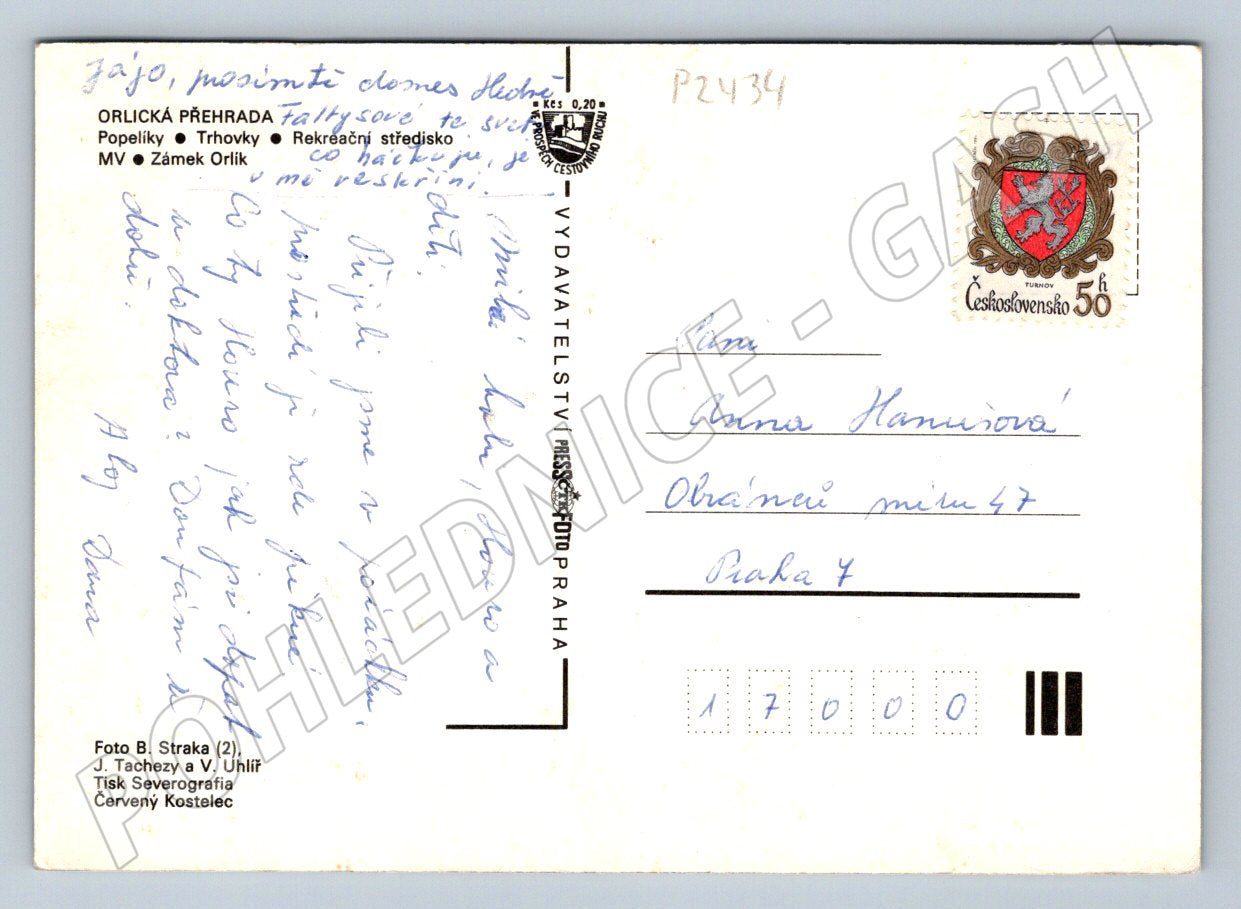 Jájo, prosímtě dones Hedvě
Faltysové te svetr
co háčkuju, je
v mé ve skříni.
ORLICKÁ PŘEHRADA
Popelíky ● Trhovky ● Rekreační středisko
MV ● Zámek Orlík
Kčs 0,20
VE PROSPĚCH CESTOVNÍHO RUCHU
Milá babi, Honzo a
děti.
Přijeli jsme v pořádku,
prostředí je zde pěkné.
Co ty Honzo jak jsi dopad
u doktora? Doufám že
dobře.
Ahoj Dana
VYDAVATELSTVÍ PRESSFOTO PRAHA
ČTK
Foto B. Straka (2),
J. Tachezy a V. Uhlíř
Tisk Severografia
Červený Kostelec
P2434
TURNOV
Československo 50 h
Paní
Anna Hanušová
Obránců míru 47
Praha 7
17000
POHLEDNICE - GASH